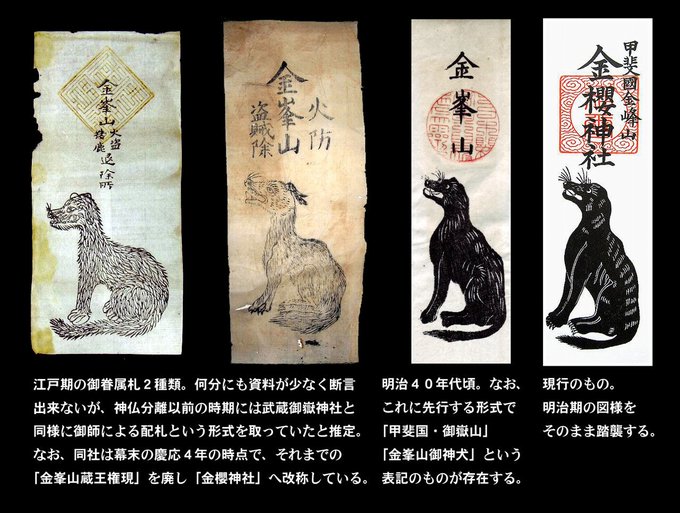 金峯山
火盗
退除所
金峯山
火防
盗賊除
金峯山
甲斐國金峰山
金櫻神社
江戸期の御眷属札2種類。何分にも資料が少なく断言
出来ないが、神仏分離以前の時期には武蔵御嶽神社と
同様に御師による配札という形式を取っていたと推定。
なお、同社は幕末の慶応4年の時点で、それまでの
「金峯山蔵王権現」を廃し「金櫻神社」へ改称している。
明治40年代頃。なお、
これに先行する形式で
「甲斐国・御嶽山」
「金峯山御神犬」という
表記のものが存在する。
現行のもの。
明治期の図様を
そのまま踏襲する。